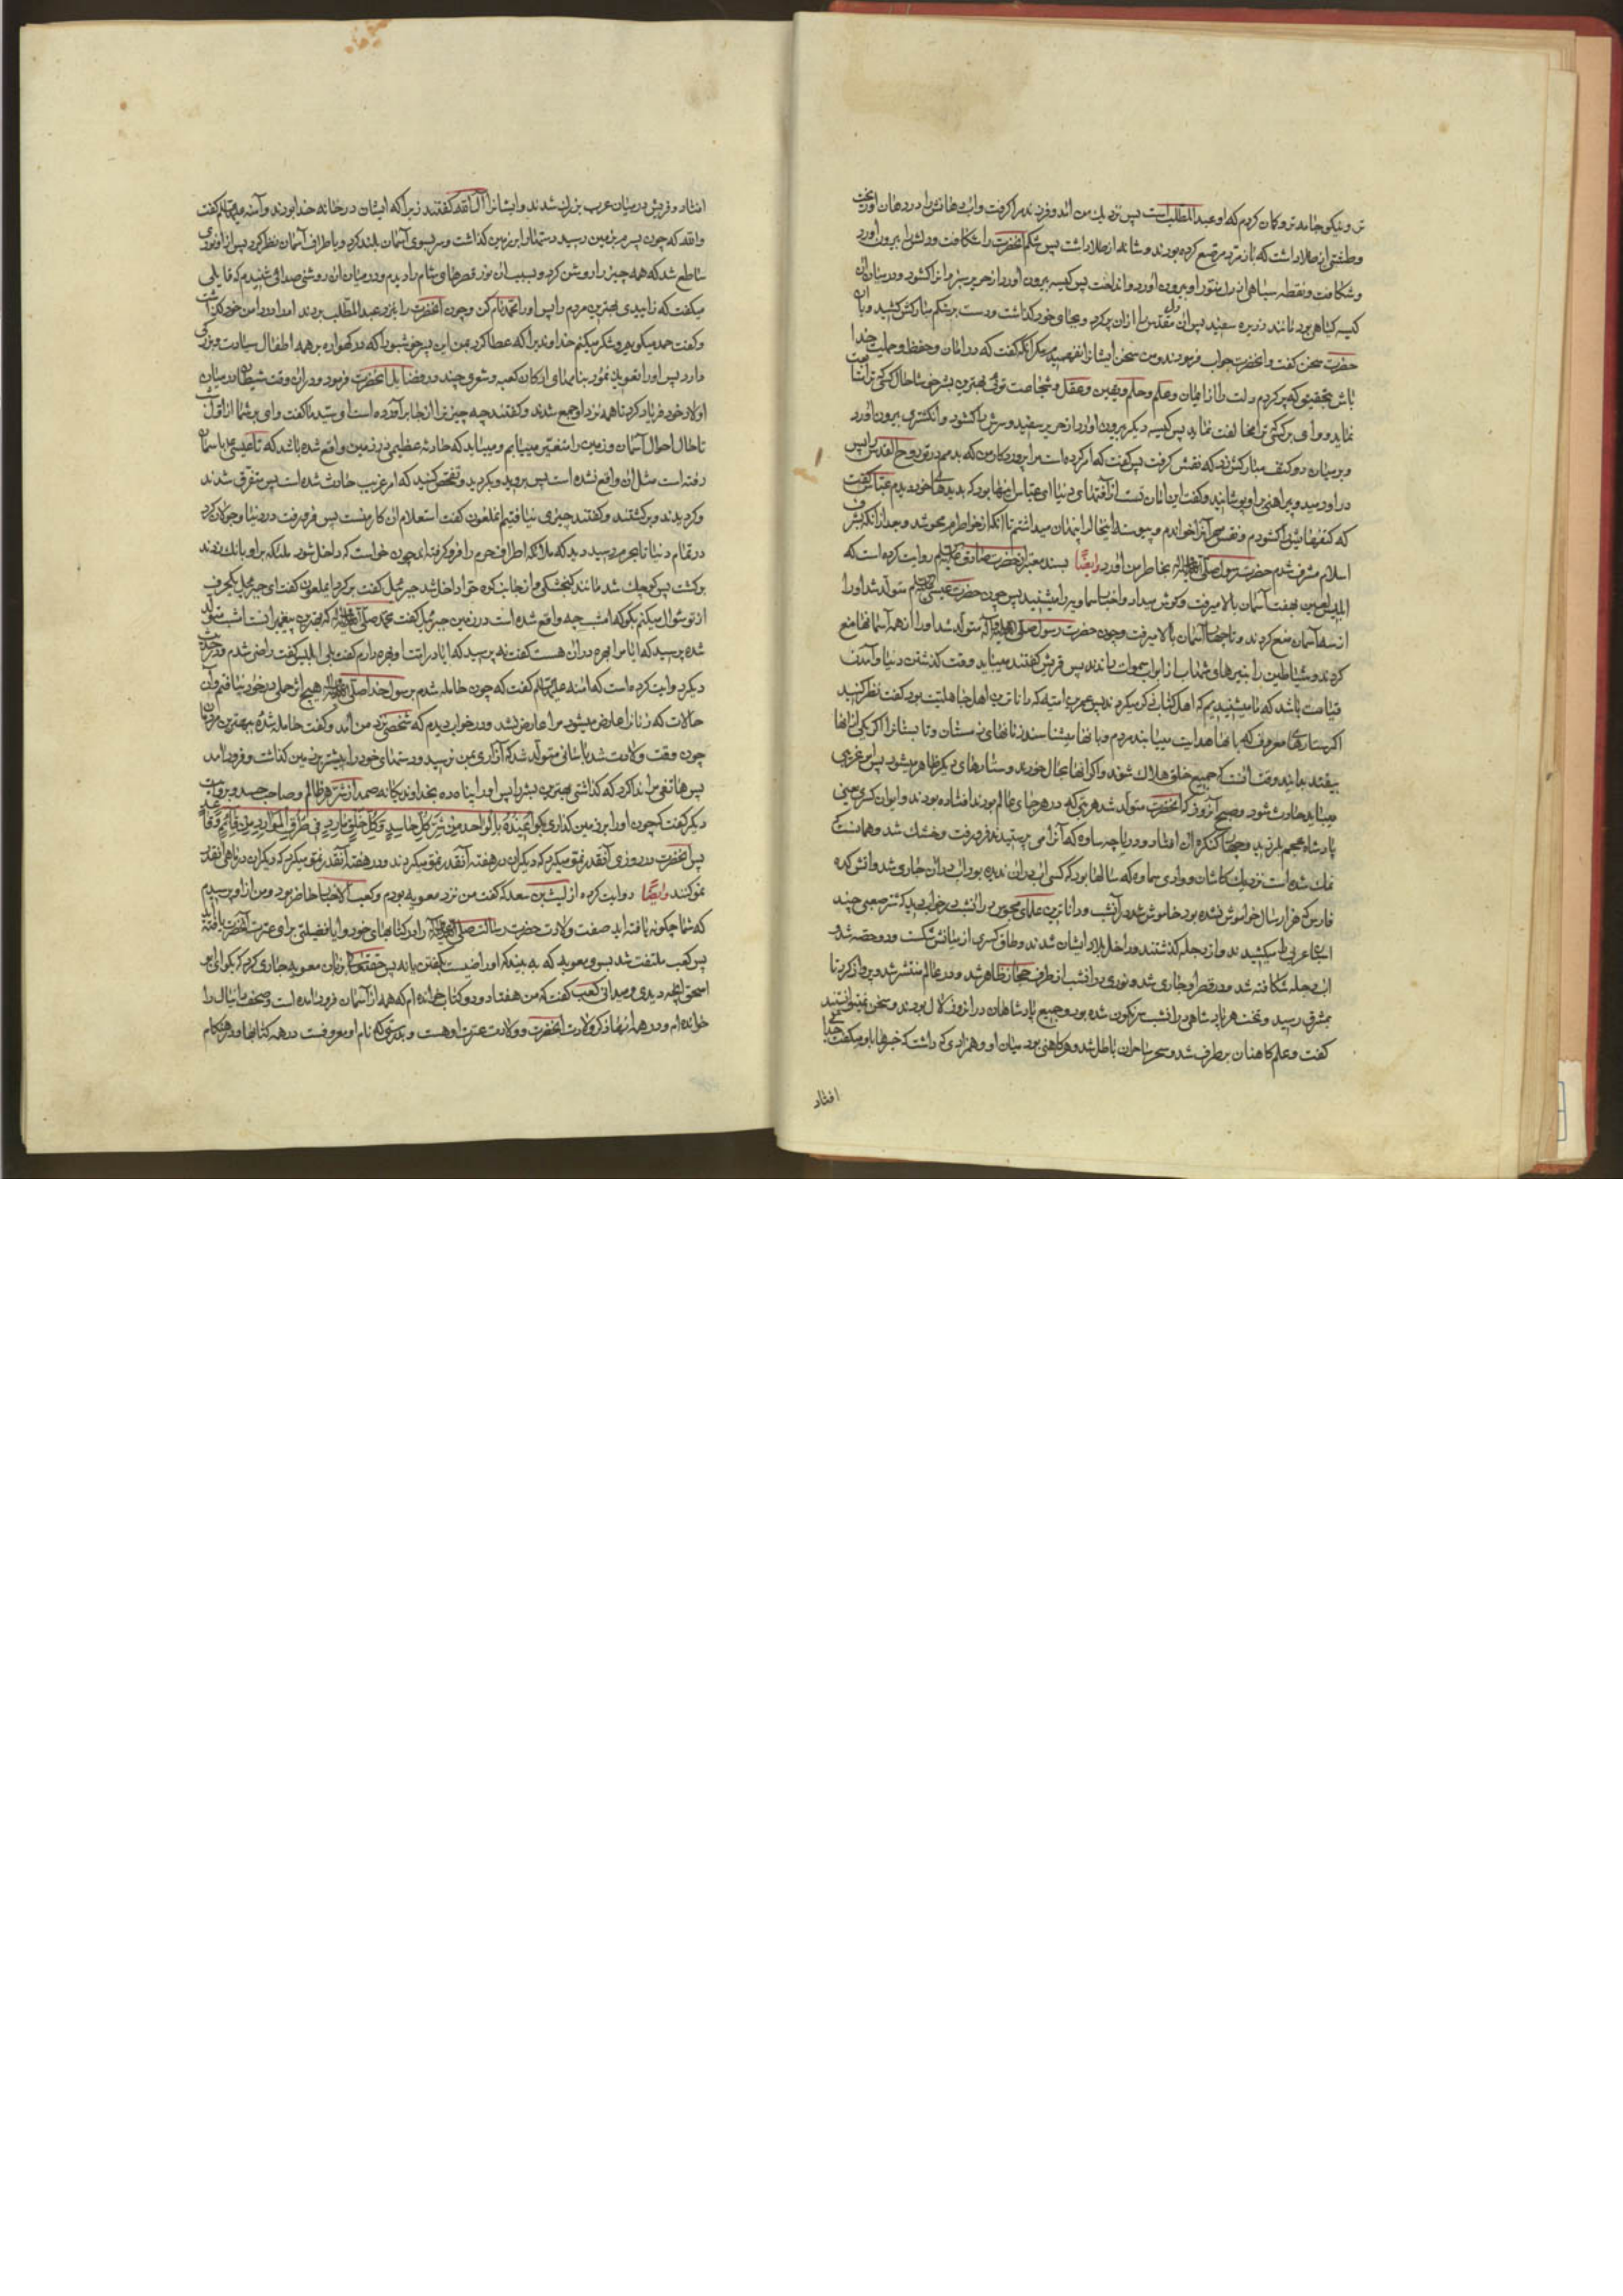 تر و نیکو جامه‌تر و گمان کردم که او عبد المطلبست پس نزدیك من آمد و فرزندم را گرفت و آب دهانش را در دهان او ریخت
و طشتی از طلا داشت که بازمرد مرصع کرده بودند و شانه از طلا داشت پس شکم آنحضرت را شکافت و دلش را بیرون آورد
و شکافت و نقطه سیاهی از دل منور او بیرون آورد و انداخت پس کیسه بیرون آورد از حریر سبز و آنرا کشود و در میان آن
کیسه گیاهی بود مانند ذریره سفید پس آن دل مقدس را از آن پر کرد و بجای خود گذاشت و دست بر شکم مبارکش کشید و با آن
حضرت سخن گفت و آنحضرت جواب فرمودند و من سخن ایشانرا نفهمیدم مگر آنکه گفت که در امان و حفظ و حمایت خدا
باش بتحقیق که پر کردم دلت را از ایمان و علم و حلم و یقین و عقل و شجاعت توئی بهترین بشر خوشا حال کسی که ترا متابعت
نماید و وای بر کسی که ترا مخالفت نماید پس کیسه دیگر بیرون آورد از حریر سفید و سرش را کشود و انگشتری بیرون آورد
و بر میان دو کتف مبارکش زد که نقش گرفت پس گفت که امر کرده است مرا پروردگار من که بدمم در تو روح القدس را پس
در او دمید و پیراهنی بر او پوشانید و گفت این امان تست از آفتهای دنیا ای عباس اینها بود که بدیدهای خود دیدم عباس گفت
که کتفهایش را کشودم و نقش مهر آنرا خواندم و پیوسته اینحال را پنهان میداشتم تا آنکه از خاطرم محو شد و بعد از آنکه بشرف
اسلام مشرف شدم حضرت رسول صلی الله علیه و آله بخاطر من آورد وایضًا بسند معتبر از حضرت صادق علیه السلم روایت کرده است که
ابلیس لعین بهفت آسمان بالا میرفت و گوش میداد و اخبار سماویه را میشنید پس چون حضرت عیسی علیه السلم متولد شد او را
از سه آسمان منع کردند و تا چهار آسمان بالا میرفت و چون حضرت رسول صلی الله علیه و آله متولد شد او را از همه آسمانها منع
کردند و شیاطین را بتیرها و شهاب از ابواب سموات راندند پس قریش گفتند میباید وقت گذشتن دنیا و آمدن
قیامت باشد که ما میشنیدیم که اهل کتاب ذکر میکردند پس عمرو بن امیه که داناترین اهل جاهلیت بود گفت نظر کنید
اگر ستارهای معروف که بانها هدایت مییابند مردم و بانها میشناسند زمانهای زمستان و تابستانرا اگر یکی از آنها
بیفتد بدانید وقت آنست که جمیع خلق هلاك شوند و اگر آنها بحال خودند و ستارهای دیگر ظاهر میشود پس امر غریبی
میباید حادث شود و صبح آنروز که آنحضرت متولد شد هر بتی که در هر جای عالم بودند افتاده بودند و ایوان کسری یعنی
پادشاه عجم بلرزید و چهارده کنگره آن افتاد و دریاچه ساوه که آنرا می پرستیدند فرو رفت و خشك شد و همانست که
نمك شده است نزدیك کاشان و وادی سماوه که سالها بود که کسی آب در آن ندیده بود آب در آن جاری شد و آتش کده
فارس که هزار سال خاموش نشده بود خاموش شد در آنشب و داناترین علمای مجوس در آنشب در خواب دید که شتر صعبی چند
اسبان عربی را میکشیدند و از دجله گذشتند و داخل بلاد ایشان شدند و طاق کسری از میانش شکست و دو حصه شد و
آب دجله شکافته شد و در قصر او جاری شد و نوری در آنشب از طرف حجاز ظاهر شد و در عالم منتشر شد و پرواز کرد تا
بمشرق رسید و تخت هر پادشاهی در آنشب سرنگون شده بود و جمیع پادشاهان در آنروز لال بودند و سخن نمیتوانستند
گفت و علم کاهنان برطرف شد و سحر ساحران باطل شد و هر کاهنی بود میان او و همزادی که داشت که خبرها باو میگفت جدائی
افتاد
افتاد و قریش در میان عرب بزرك شدند و ایشانرا آل الله گفتند زیرا که ایشان در خانه خدا بودند و آمنه علیها السلم گفت
والله که چون پسرم بر زمین رسید دستها را بر زمین گذاشت و سر بسوی آسمان بلند کرد و باطراف آسمان نظر کرد پس از او نوری
ساطع شد که همه چیز را روشن کرد و بسبب آن نور قصرهای شام را دیدم و در میان آن روشنی صدائی شنیدم که قایلی
میگفت که زاییدی بهترین مردم را پس او را محمد نام کن و چون آنحضرت را بنزد عبد المطلب بردند او را در دامن خود گذاشت
و گفت حمد میگویم و شکر میکنم خداوندیرا که عطا کرد بمن این پسر خوشبو را که در گهواره بر همه اطفال سیادت و بزرگی
دارد پس او را تعویذ نمود بنامهای ارکان کعبه و شعری چند در فضایل آنحضرت فرمود و در آن وقت شیطان در میان
اولاد خود فریاد کرد تا همه نزد او جمع شدند و گفتند چه چیز ترا از جا برآورده است ای سید ما گفت وای بر شما از اول شب
تا حال احوال آسمان و زمین را متغیر مییابم و میباید که حادثه عظیمی در زمین واقع شده باشد که تا عیسی باسمان
رفته است مثل آن واقع نشده است پس بروید و بگردید و تفحص کنید که امر غریب حادث شده است پس متفرق شدند
و گردیدند و برگشتند و گفتند چیزی نیافتیم آنملعون گفت استعلام این کار منست پس فرو رفت در دنیا و جولان کرد
در تمام دنیا تا بحرم رسید دید که ملائکه اطراف حرم را فرو گرفته اند چون خواست که داخل شود ملئکه بر او بانك زدند
برگشت پس کوچك شد مانند گنجشکی و از جانب کوه حرا داخل شد جبرئیل گفت برگرد ای ملعون گفت ای جبرئیل یکحرف
از تو سؤال میکنم بگو که امشب چه واقع شده است در زمین جبرئیل گفت محمد صلی الله علیه و آله که بهترین پیغمبرانست امشب متولد
شده پرسید که آیا مرا بهره در آن هست گفت نه پرسید که آیا در امت او بهره دارم گفت بلی ابلیس گفت راضی شدم و در حدیث
دیگر روایت کرده است که آمنه علیها السلم گفت که چون حامله شدم برسول خدا صلی الله علیه و آله هیچ اثر حملی در خود نیافتم و آن
حالات که زنانرا عارض میشود مرا عارض نشد و در خواب دیدم که شخصی نزد من آمد و گفت حامله شدهٔ ببهترین مردمان
چون وقت ولادت شد باسانی متولد شد که آزاری بمن نرسید و دستهای خود را پیشتر بزمین گذاشت و فرود آمد
پس هاتفی مرا ندا کرد که گذاشتی بهترین بشر را پس او را پناه ده بخداوند یگانه صمد از شر هر ظالم و صاحب حسد و بروایت
دیگر گفت که چون او را بر زمین گذاری بگو اُعیذُهُ بالواحد مِن شَرِّ کُلِّ حاسِدٍ وَ کُلِّ خَلقٍ مارِدٍ فی طُرُقِ المَوارِدِ مِن قائِمٍ وَ قاعِد
پس آنحضرت در روزی آنقدر نمو میکرد که دیگران در هفته آنقدر نمو میکردند و در هفته آنقدر نمو میکرد که دیگران در ماهی آنقدر
نمو کنند وایضًا روایت کرده از لیث بن سعد که گفت من نزد معویه بودم و کعب الاحبار حاضر بود و من از او پرسیدم
که شما چگونه یافته اید صفت ولادت حضرت رسالت صلی الله علیه و آله را در کتابهای خود و آیا فضیلتی برای عترت آنحضرت یافته اید
پس کعب ملتفت شد بسوی معویه که به بیند که او راضیست بگفتن یا نه پس حقتعالی بر زبان معویه جاری کرد که بگو ای ابو
اسحق آنچه دیدی و میدانی کعب گفت که من هفتاد و دو کتاب خوانده ام که همه از آسمان فرود آمده است و صحف دانیال را
خوانده ام و در همه آنها ذکر ولادت آنحضرت و ولادت عترت او هست و بدرستی که نام او معروفست در همه کتابها و در هنگام